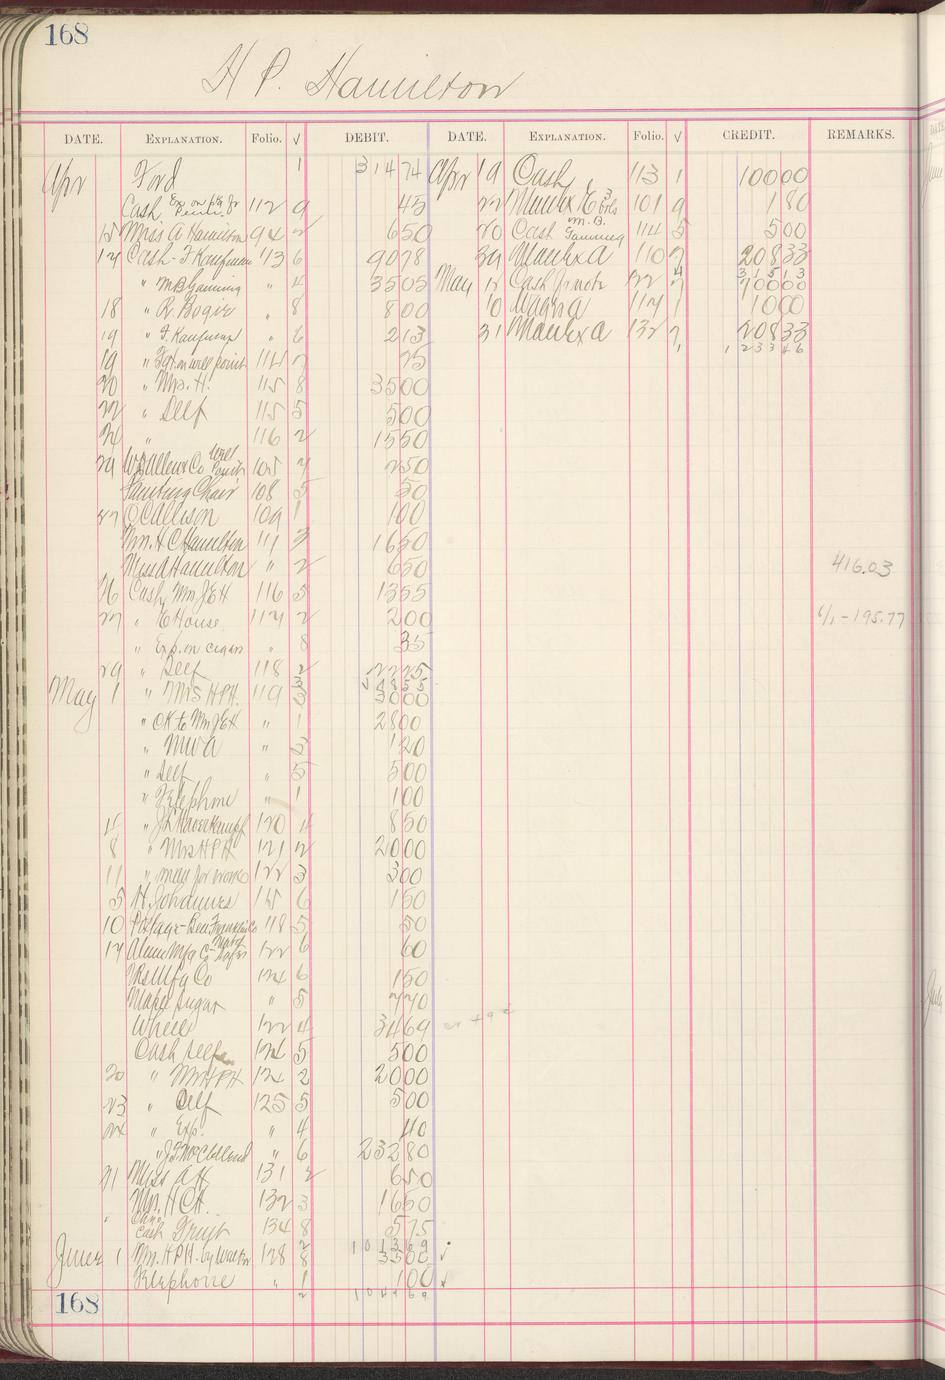 168
H P. Hamilton
DATE. EXPLANATION. Folio. √ DEBIT. DATE. EXPLANATION. Folio. √ CREDIT. REMARKS.
Apr Ford 1 314 74 Apr 19 Cash 113 1 100 00
Cash Ex on pkg for 112 9 45 22 101 9 1 80
15 Miss A Hamilton 94 2 6 50 20 Cash M.B. Gamming 114 5 5 00
17 Cash - F Kaufman 113 6 90 78 30 110 7 208 33
" M B Gamming " 4 35 05 May 12 Cash 122 7 100 00
315 13
18 " R. Bogie " 8 8 00 10 117 1 10 00
19 " F. Kaufman " 6 2 13 31 132 7 208 33
1 233 46
19 " 114 7 25
20 " Mrs. H. 115 8 35 00
22 " Self 115 5 5 00
24 " 116 2 15 50
29 Co 105 7 2 50
Painting Chair 108 5 50
27 O C Allison 109 1 1 00
Mrs. H C Hamilton 111 3 16 50
Miss A Hamilton " 2 6 50 416.03
26 Cash Mrs J E H 116 5 13 55
27 " House 117 2 2 00 6/1 - 195.77
" Exp. on cigars " 8 35
29 " Self 118 2 22 25
May 1 " Mrs H P H. 119 3 30 00
" OK to Mrs J E H " 1 28 00
" M W A " 3 1 20
" Self " 5 5 00
" Telephone " 1 1 00
4 " J L Haverkampf 120 4 8 50
8 " Mrs H P H 121 2 20 00
11 " 122 3 3 00
5 H. Johannes 115 6 1 50
10 Postage - Ben Franklin Co 118 5 50
17 Alum Mfg Co 122 6 60
Mfg Co 124 6 1 50
Maple Sugar " 5 7 70
Wheel 122 4 34 69
Cash Self 124 5 5 00
20 " Mrs H P H 124 2 20 00
23 " Self 125 5 5 00
24 " Exp. " 4 40
" J. F. McClelland " 6 232 80
31 Miss A H 131 2 6 50
" Mrs. H C H. 132 3 16 50
Cash Fruit 134 8 5 75
1 013 69
June 1 Mrs. H P H. by Walter 128 8 35 00
Telephone " 1 1 00
2 1 049 69
168